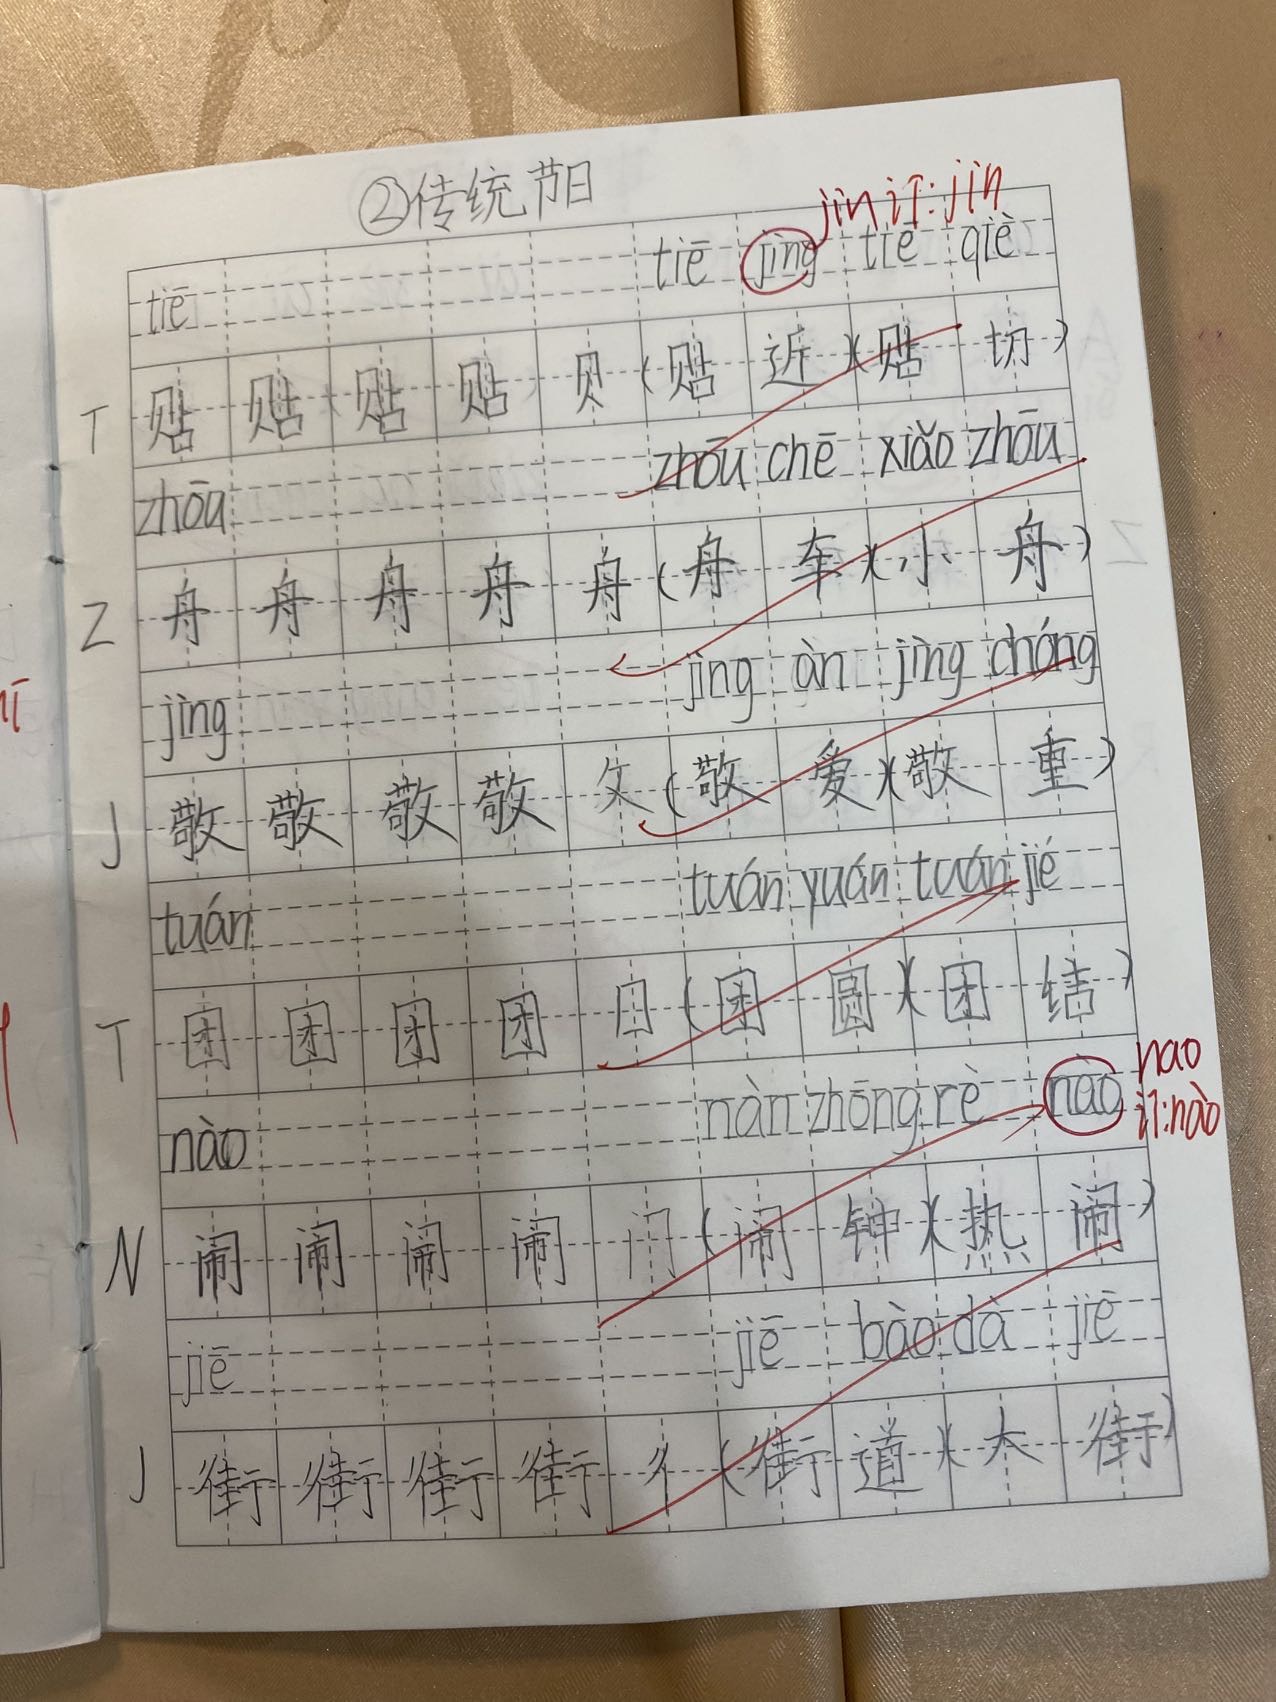 ②传统节日
jìn订:jìn
tiē tiē jìng tiē qiè
T 贴 贴 贴 贴 贝(贴 近)(贴 切)
zhōu zhōu chē xiǎo zhōu
Z 舟 舟 舟 舟 舟(舟 车)(小 舟)
jìng jìng àn jìng chóng
J 敬 敬 敬 敬 攵(敬 爱)(敬 重)
tuán tuán yuán tuán jié
T 团 团 团 团 囗(团 圆)(团 结)
nao
nào nàn zhōng rè nào 订:nào
N 闹 闹 闹 闹 门(闹 钟)(热 闹)
jiē jiē bào dà jiē
J 街 街 街 街 彳(街 道)(大 街)